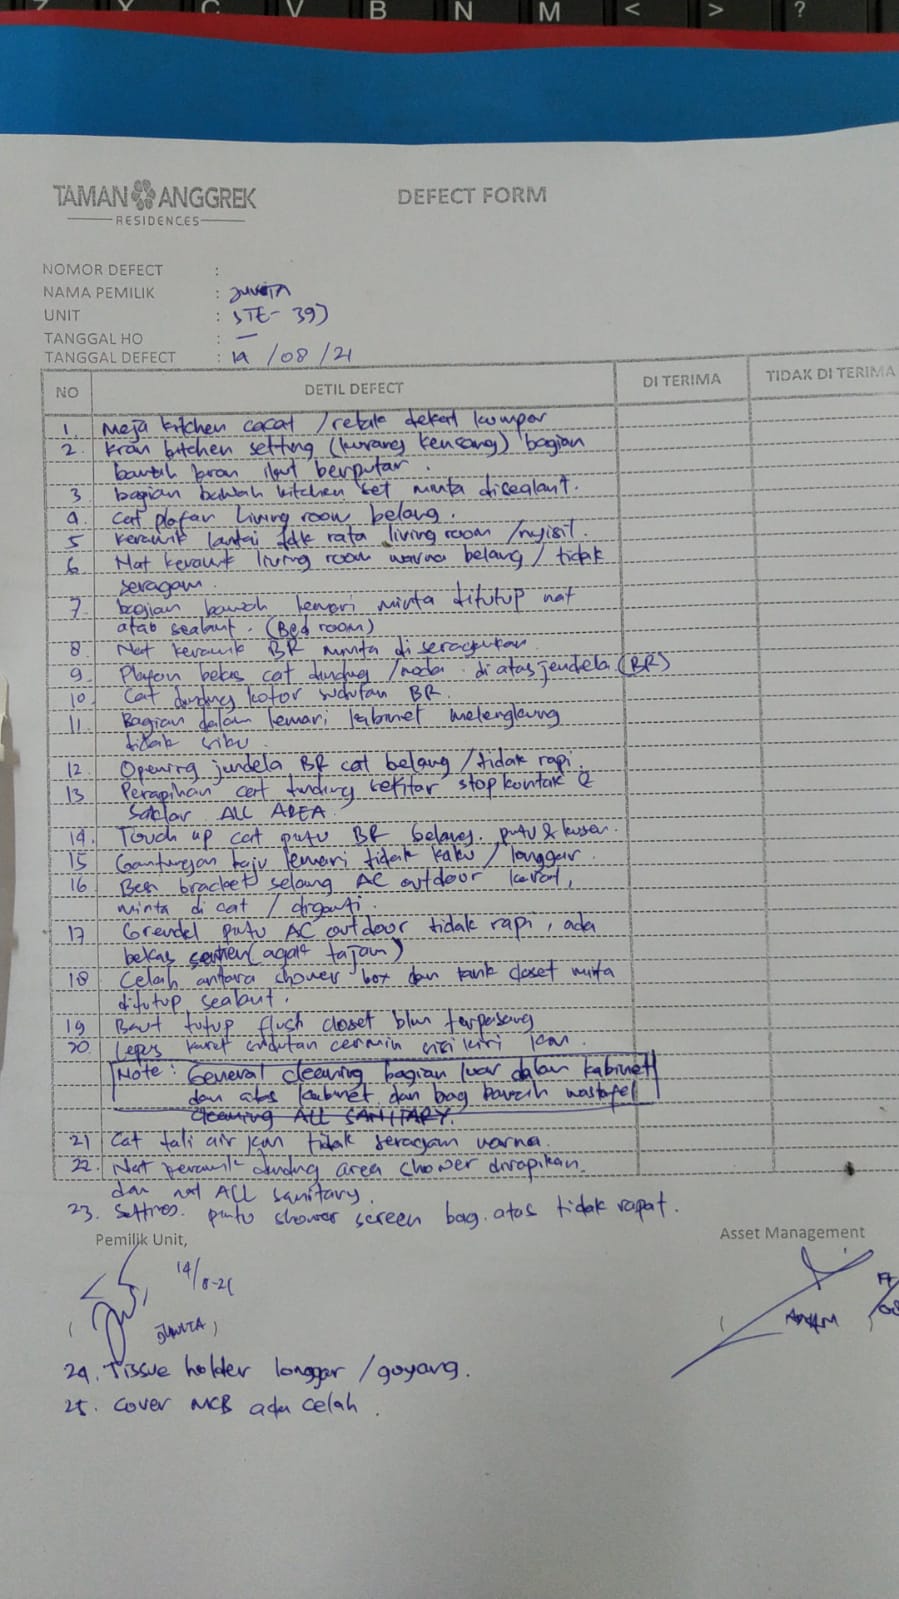 Z X C V B N M < > ?
TAMAN ANGGREK
RESIDENCES
DEFECT FORM
NOMOR DEFECT :
NAMA PEMILIK : JUWITA
UNIT : STE- 39J
TANGGAL HO : —
TANGGAL DEFECT : 14 /08 /21
NO DETIL DEFECT DI TERIMA TIDAK DI TERIMA
1 Meja kitchen cacat /retak dekat kompor
2. Kran kitchen setting (kurang kencang) bagian
bawah kran ikut berputar.
3 bagian bawah kitchen set minta disealant.
4. Cat plafon Living room belang.
5 keramik lantai tdk rata living room /nyisil.
6 Nat keramik living room warna belang / tidak
seragam.
7. bagian bawah lemari minta ditutup nat
atau sealant. (Bed room)
8. Nat keramik BR minta diseragamkan.
9. Plafon bekas cat dinding /noda. di atas jendela (BR)
10 Cat dinding kotor sudutan BR.
11. Bagian dalam lemari kabinet melengkung
tidak siku.
12. Opening jendela BR cat belang /tidak rapi.
13 Perapihan cat dinding sekitar stop kontak &
saklar ALL AREA.
14. Touch up cat pintu BR belang. pintu & kusen.
15 Gantungan baju lemari tidak kaku / longgar.
16 Besi bracket selang AC outdoor karat,
minta di cat / diganti.
17 Grendel pintu AC outdoor tidak rapi, ada
bekas (agak tajam)
18 Celah antara shower box dan tank closet minta
ditutup sealant.
19 Baut tutup flush closet blm terpasang
20. Lepas karet sudutan cermin sisi kiri
Note : General cleaning bagian luar dalam kabinet
dan atas kabinet dan bag bawah wastafel
cleaning ALL SANITARY.
21 Cat tali air tidak seragam warna.
22. Nat keramik dinding area shower dirapikan.
dan nat ALL sanitary.
23. Setting. pintu shower screen bag. atas tidak rapat.
Pemilik Unit, Asset Management
14/8-21
( JUWITA )
(
24. Tissue holder longgar /goyang.
25. Cover MCB ada celah.